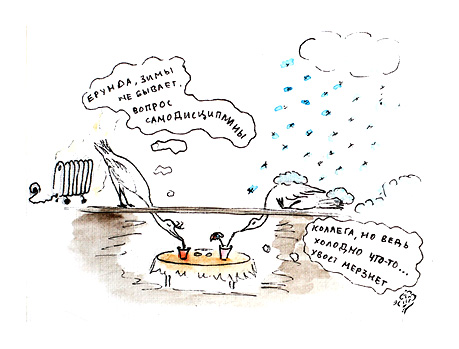 ЕРУНДА, ЗИМЫ
НЕ БЫВАЕТ,
ВОПРОС
САМОДИСЦИПЛИНЫ
КОЛЛЕГА, НО ВЕДЬ
ХОЛОДНО ЧТО-ТО...
ХВОСТ МЕРЗНЕТ